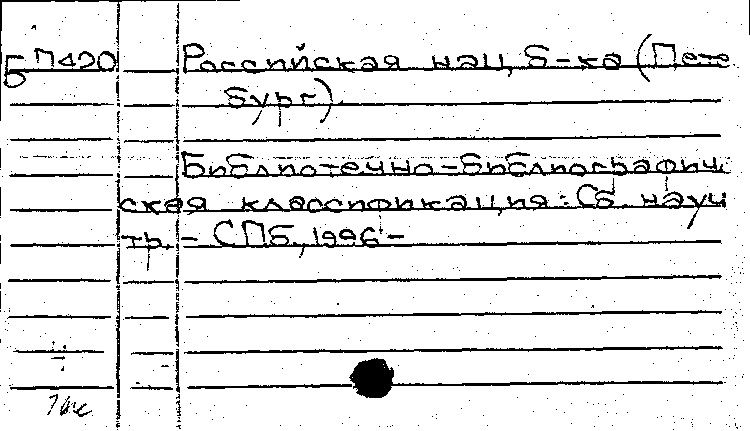 Б П420 Российская нац. б-ка (Пете
бург).
Библиотечно-библиографич
ская классификация: Сб. науч
тр. - СПб., 1996 -